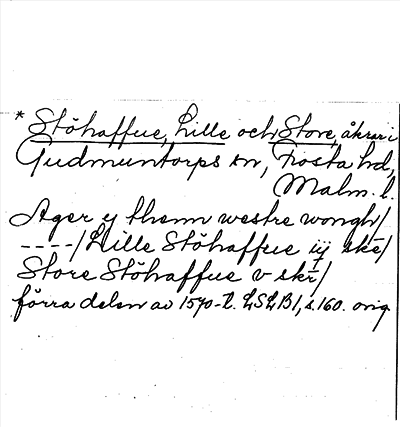 * Stöhaffue, Lille och Store, åkrar i
Gudmuntorps sn, Frosta hd,
Malm. l.
Ager y thenn westre wongh/
----/Lille Stöhaffue iij skr/
Store Stöhaffue v skr/
förra delen av 1570-t. LSLB1, s. 160. orig.